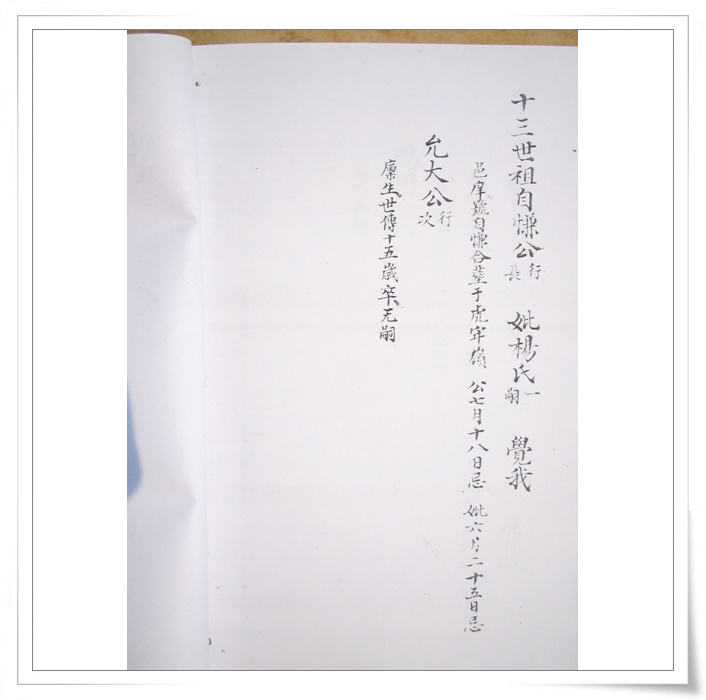 十三世祖自慊公行長 妣楊氏一嗣 覺我
邑庠號自慊合塟于虎牢嶺 公七月十八日忌 妣六月二十五日忌
允大公行次
廪生世傳十五歲卒无嗣